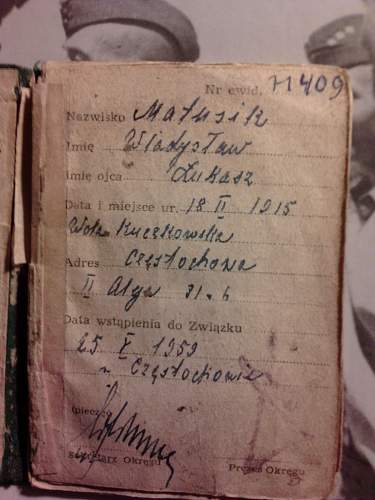 Nr ewid. 71409
Nazwisko Matusik
Imię Władysław
Imię ojca Łukasz
Data i miejsce ur. 18 II 1915
Wola Kuczkowska
Adres Częstochowa
II Aleja 31. 6
Data wstąpienia do Związku
25 X 1959
w Częstochowie
(pieczęć)
Sekretarz Okręgu Prezes Okręgu